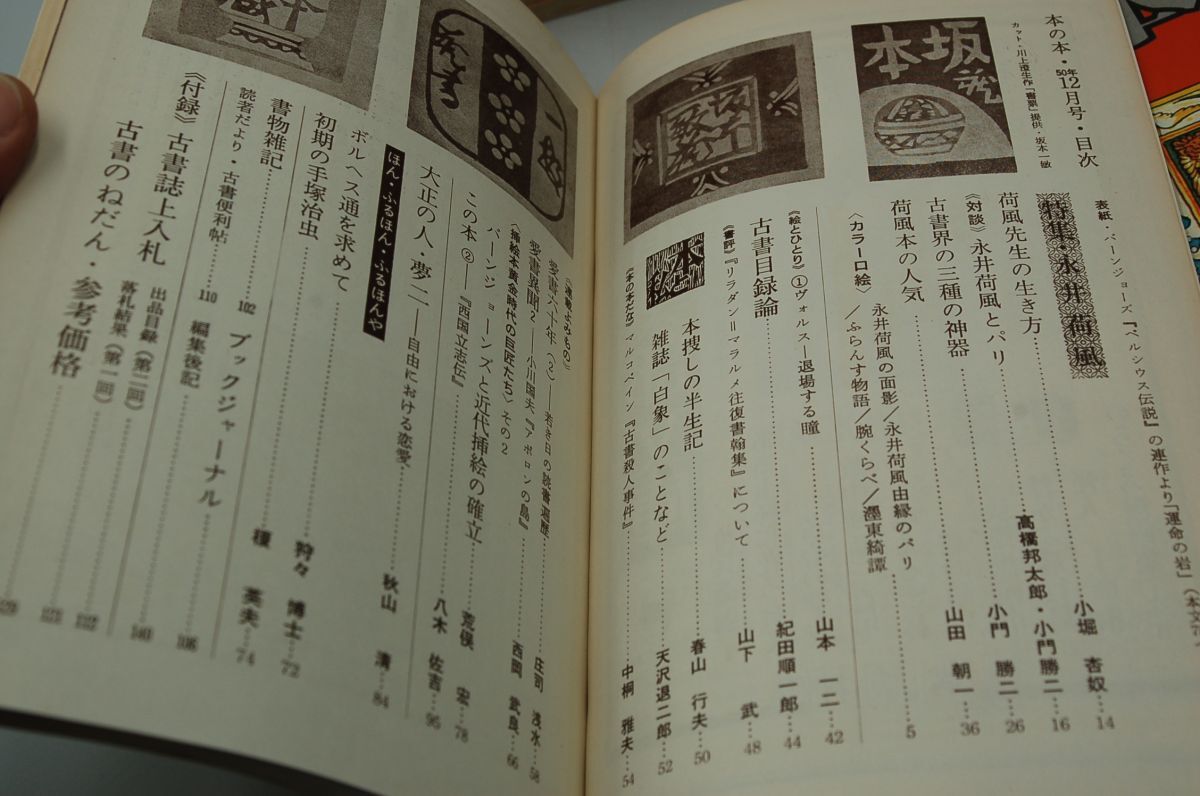 本の本・50年12月号・目次
カット・川上澄生作「書票」提供・坂本一敏
表紙・バーンジョーズ『ペルシウス伝説』の連作より「運命の岩」（本文7
坂本
特集・永井荷風
荷風先生の生き方……小堀 杏奴…14
《対談》永井荷風とパリ……高橋邦太郎・小門勝二…16
古書界の三種の神器……小門 勝二…26
荷風本の人気……山田 朝一…36
〈カラー口絵〉永井荷風の面影／永井荷風由縁のパリ／ふらんす物語／腕くらべ／濹東綺譚……5
《絵とひとり》①ヴォルス—退場する瞳……山本 一二…42
古書目録論……紀田順一郎…44
《書評》『リラダン＝マラルメ往復書翰集』について……山下 武…48
本捜しの半生記……春山 行夫…50
雑誌「白象」のことなど……天沢退二郎…52
《本の本だな》マルコ・ペイジ『古書殺人事件』……中桐 雅夫…54
《連載・よみもの》
愛書六十年（2）——若き日の読書遍歴……庄司 浅水…58
愛書異聞2——小川国夫『アポロンの島』……西岡 武良…66
〈挿絵本黄金時代の巨匠たち〉その2
バーン・ジョーンズと近代挿絵の確立……荒俣 宏…78
この本②——『西国立志伝』……八木 佐吉…95
大正の人・夢二——自由における恋愛……秋山 清…84
ほん・ふるほん・ふるほんや
ボルヘス通を求めて……狩々 博士…72
初期の手塚治虫……榎 英夫…74
書物雑記……102
ブックジャーナル……106
読者だより・古書便利帖……110
編集後記……140
《付録》古書誌上入札
出品目録（第二回）
落札結果（第一回）
古書のねだん・参考価格